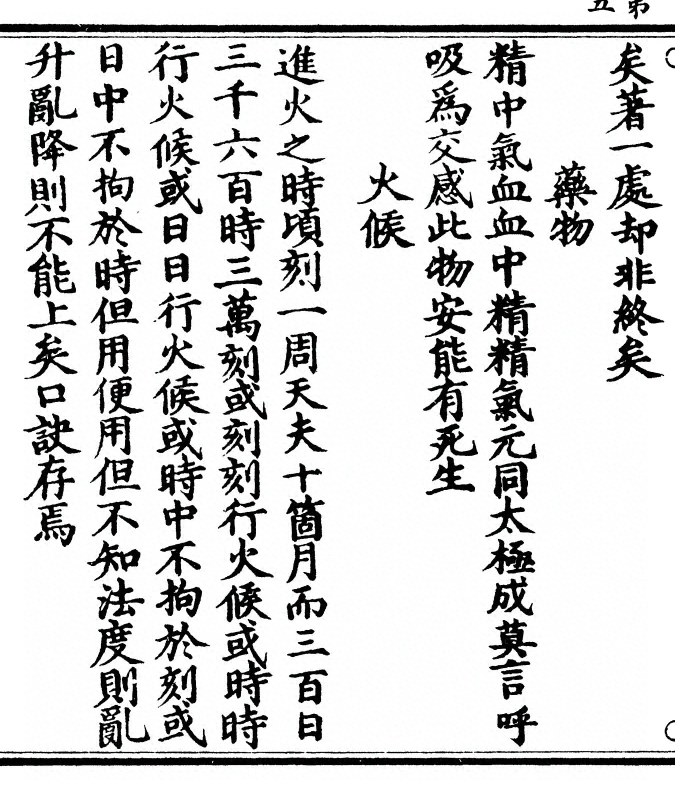 第五
矣著一處却非終矣
藥物
精中氣血血中精精氣元同太極成莫言呼
吸爲交感此物安能有死生
火候
進火之時頃刻一周天夫十箇月而三百日
三千六百時三萬刻或刻刻行火候或時時
行火候或日日行火候或時中不拘於刻或
日中不拘於時但用便用但不知法度則亂
升亂降則不能上矣口訣存焉